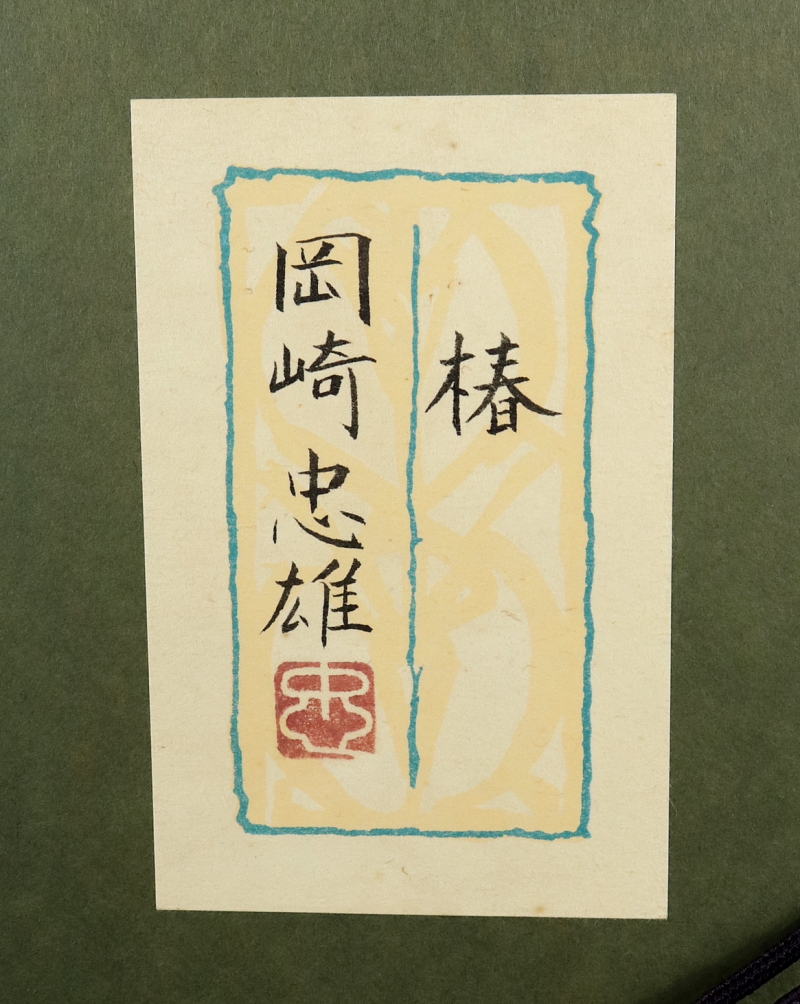 椿
岡崎忠雄
忠